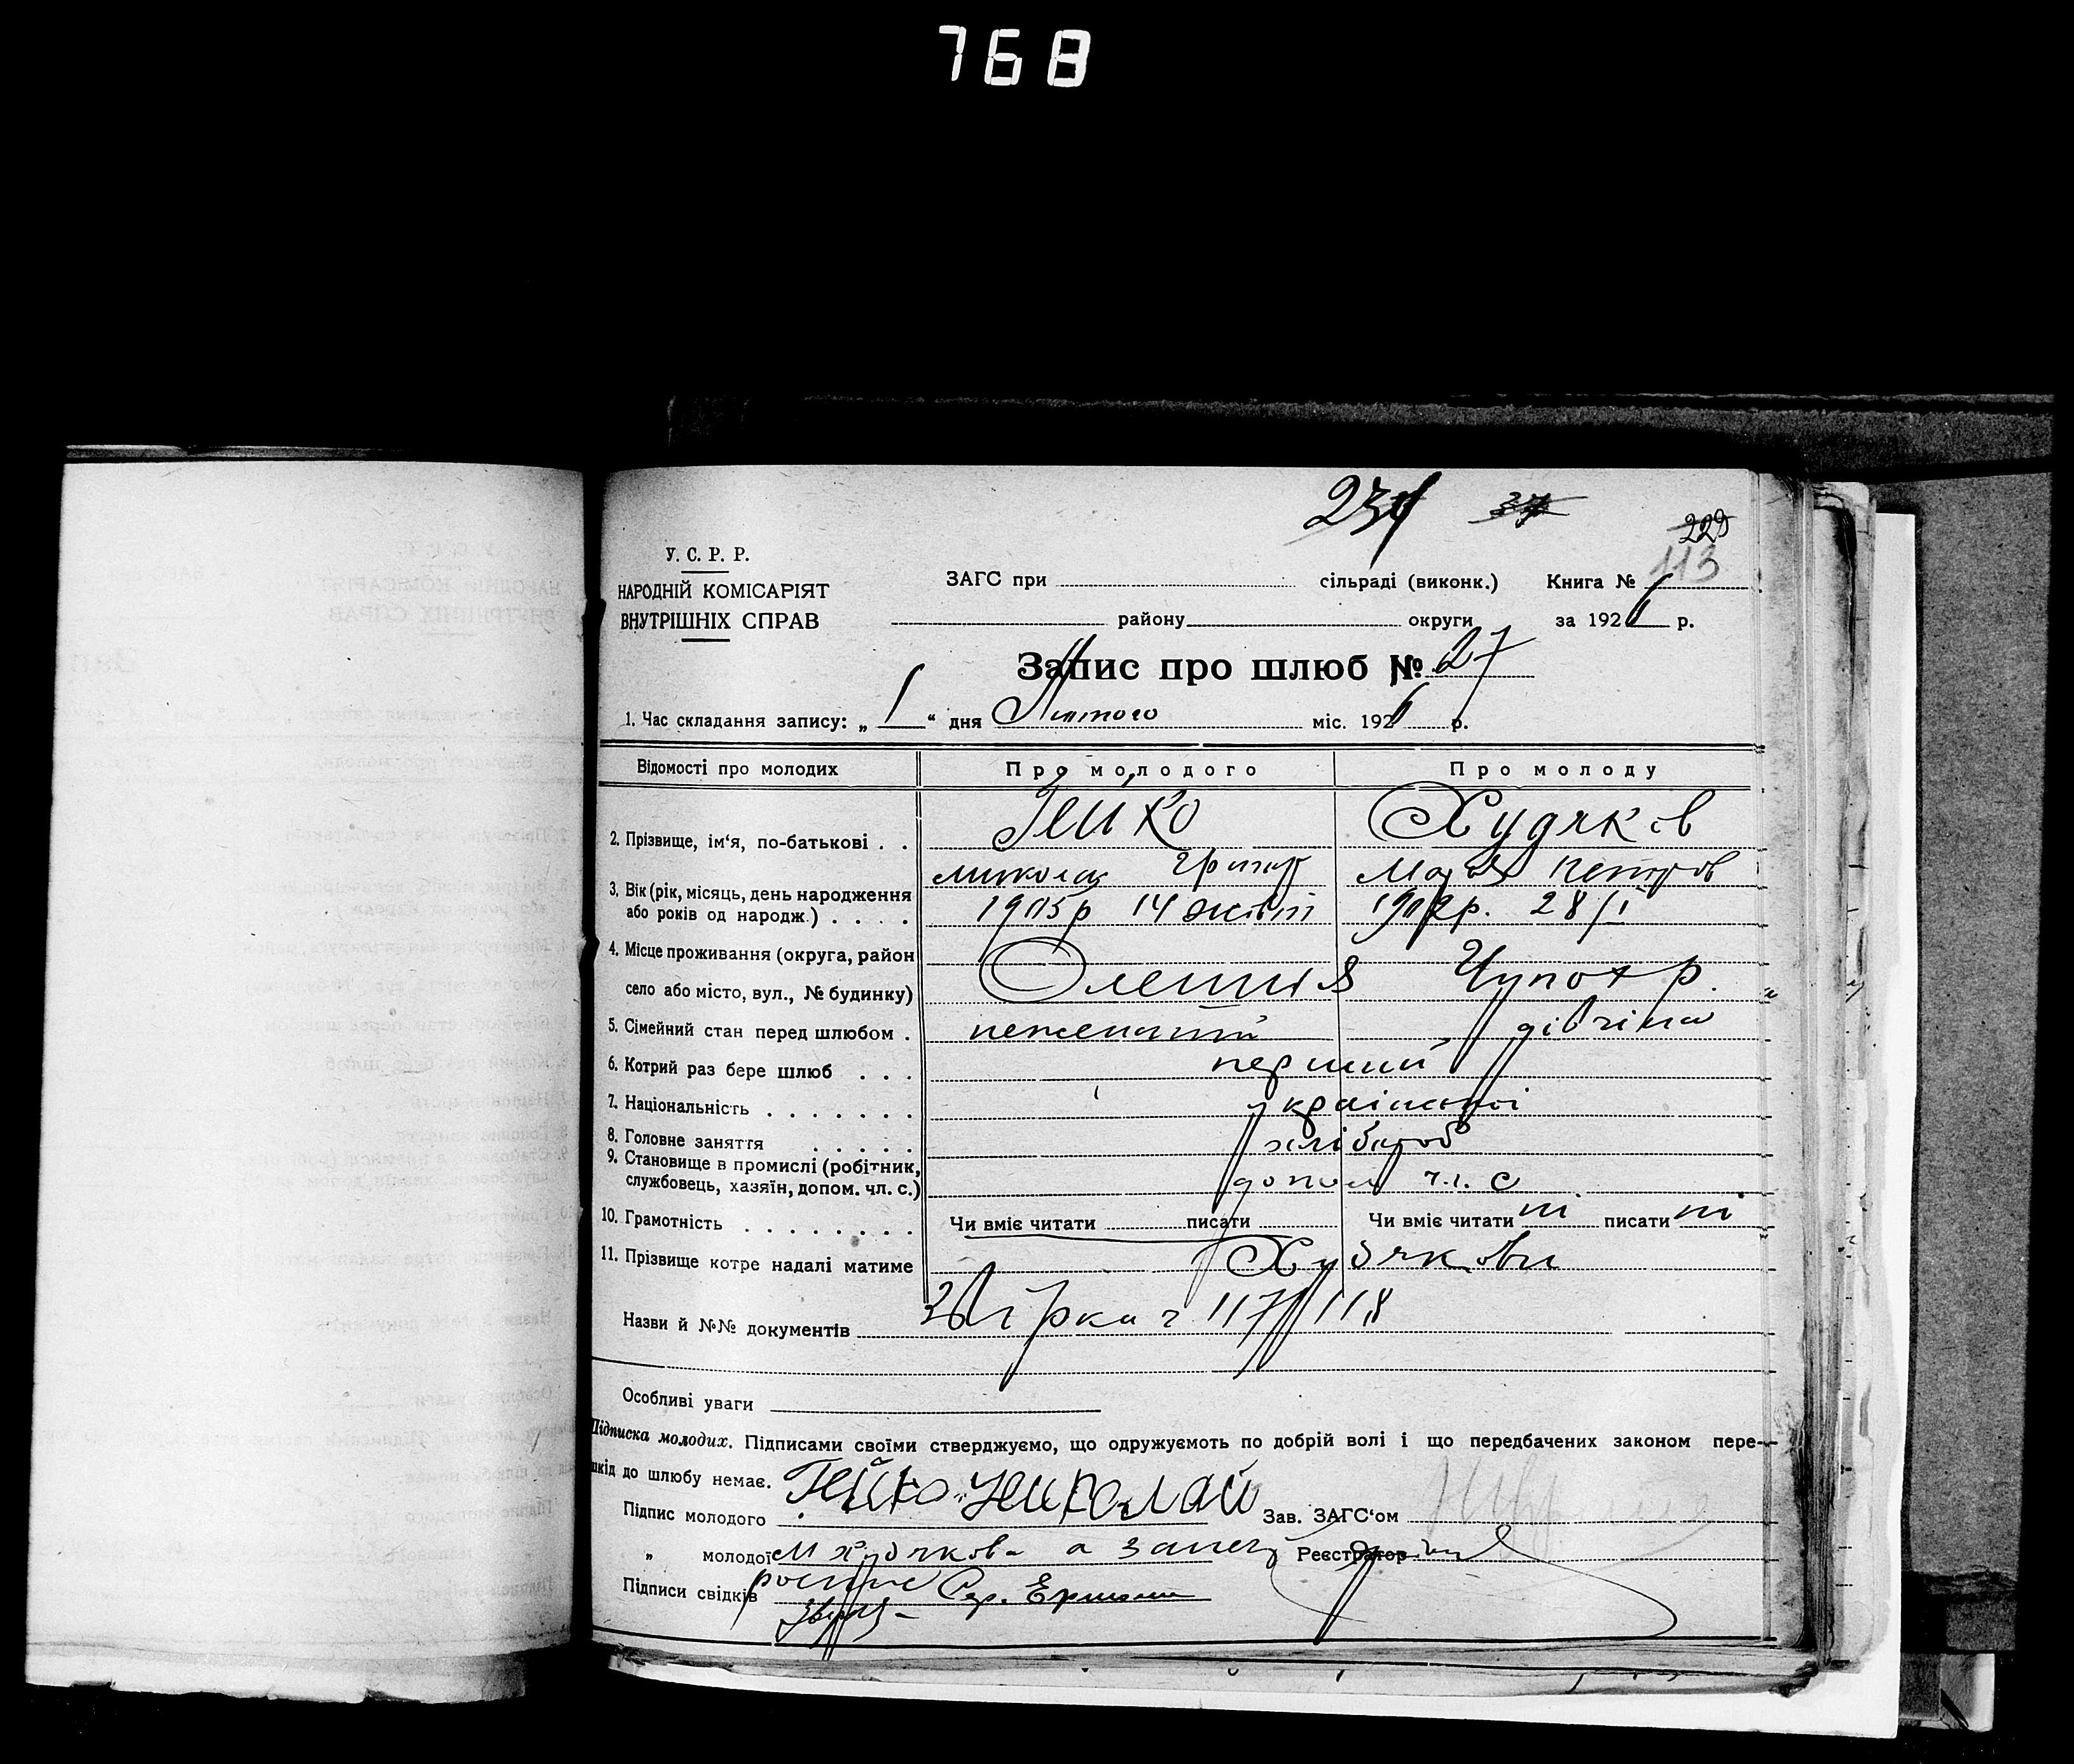 768
234 37 229
113
У. С. Р. Р.
НАРОДНІЙ КОМІСАРІЯТ
ВНУТРІШНІХ СПРАВ
ЗАГС при сільраді (виконк.) Книга № 1
району округи за 1926 р.
Запис про шлюб № 27
1. Час складання запису: „ 1 “ дня Лютого міс. 1926 р.
Відомості про молодих Про молодого Про молоду
2. Прізвище, ім‘я, по-батькові . . Гейко Худяків
микола Григор Марія петров
3. Вік (рік, місяць, день народження 1905р 14 190 р. 28/I
або років од народж.) . . . .
4. Місце проживання (округа, район
село або місто, вул., № будинку) Олешія Чупохр.
5. Сімейний стан перед шлюбом . неженатий дівчина
6. Котрий раз бере шлюб . . . перший
7. Національність . . . . . . . україської
8. Головне заняття . . . . . хлібороб
9. Становище в промислі (робітник,
службовець, хазяїн, допом. чл. с.) допом ч.с. С
10. Грамотність . . . . . . . . Чи вміє читати писати Чи вміє читати ні писати ні
11. Прізвище котре надалі матиме Худякови
Назви й №№ документів 117 118
Особливі уваги
Підписка молодих. Підписами своїми стверджуємо, що одружуємоть по добрій волі і що передбачених законом пере-
шкід до шлюбу немає.
Підпис молодого Гейко Николай Зав. ЗАГС‘ом
„ молодої М Худякова а за Реєстратор
Підписи свідків